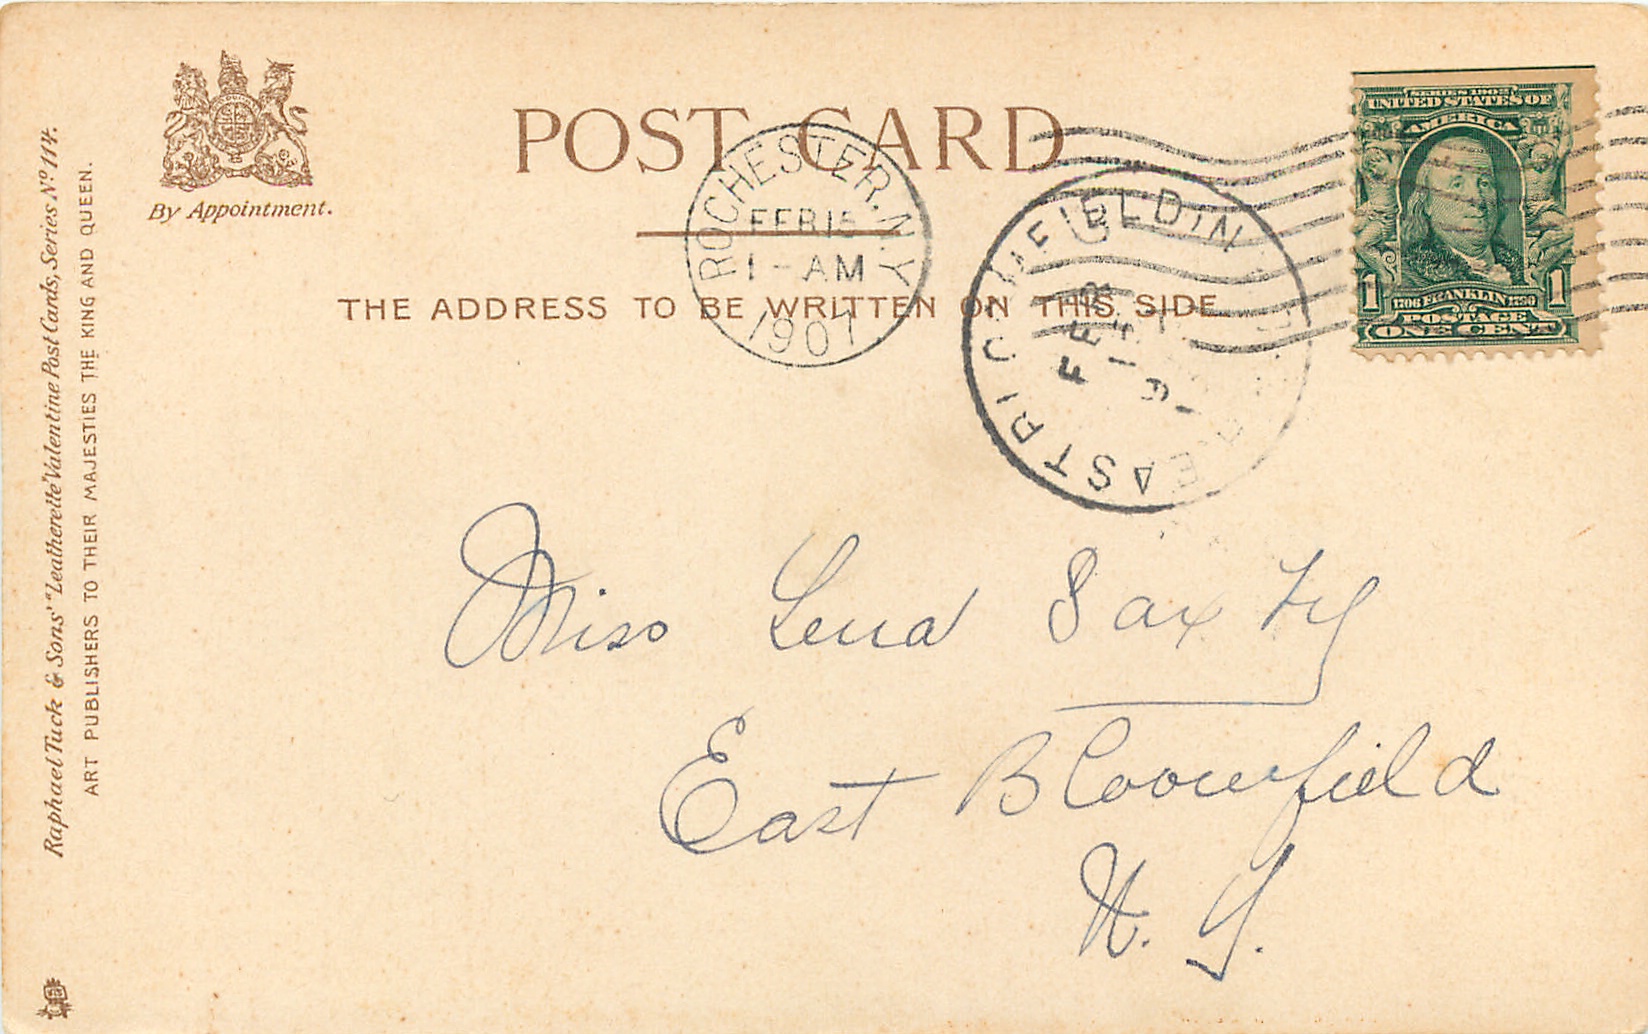 Raphael Tuck & Sons' "Leatherette" Valentine Post Cards, Series Nº 114.
ART PUBLISHERS TO THEIR MAJESTIES THE KING AND QUEEN.
By Appointment.
POST CARD
THE ADDRESS TO BE WRITTEN ON THIS SIDE.
ROCHESTER, N.Y.
FEB 15
1 - AM
1907
FEB
SERIES 1902
UNITED STATES OF
AMERICA
1 1706 FRANKLIN 1790 1
POSTAGE
ONE CENT
Miss Lena Saxty
East Bloomfield
N. Y.